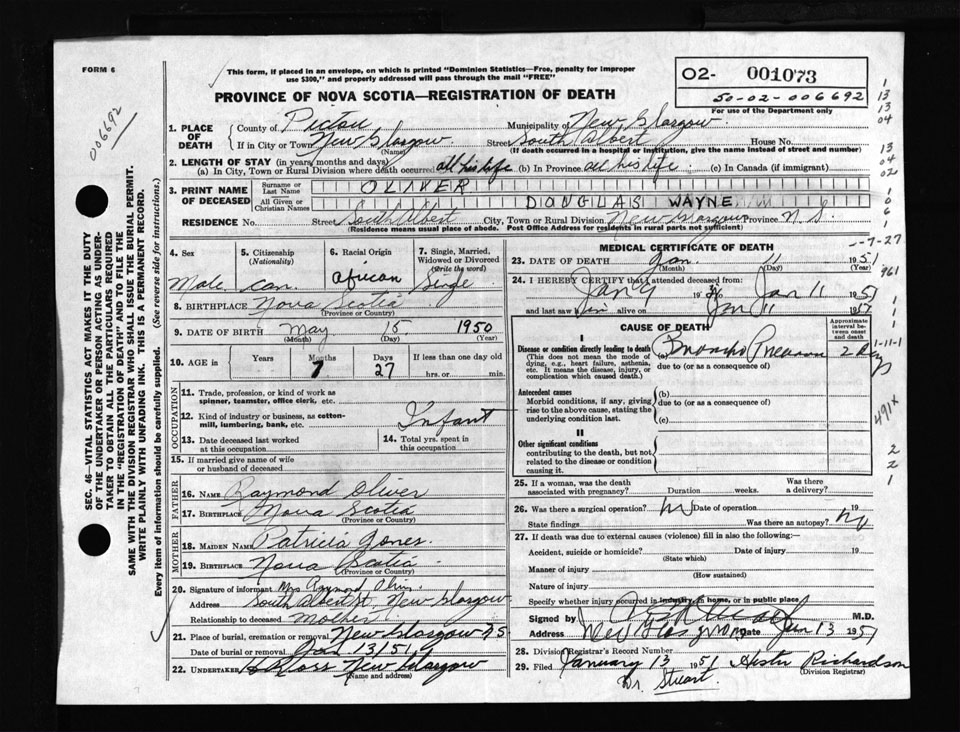 FORM 6
006692
This form, if placed in an envelope, on which is printed "Dominion Statistics—Free, penalty for improper
use $300," and properly addressed will pass through the mail "FREE"
PROVINCE OF NOVA SCOTIA—REGISTRATION OF DEATH
02- 001073
50-02-006692
For use of the Department only
SEC. 46—VITAL STATISTICS ACT MAKES IT THE DUTY
OF THE UNDERTAKER OR PERSON ACTING AS UNDER-
TAKER TO OBTAIN ALL THE PARTICULARS REQUIRED
IN THE "REGISTRATION OF DEATH" AND TO FILE THE
SAME WITH THE DIVISION REGISTRAR WHO SHALL ISSUE THE BURIAL PERMIT.
WRITE PLAINLY WITH UNFADING INK. THIS IS A PERMANENT RECORD.
Every item of information should be carefully supplied. (See reverse side for instructions.)
1. PLACE OF DEATH County of Pictou Municipality of New Glasgow
If in City or Town New Glasgow (Name) Street South Albert House No.
(If death occurred in a hospital or institution, give the name instead of street and number)
2. LENGTH OF STAY (in years, months and days)
(a) In City, Town or Rural Division where death occurred all his life (b) In Province all his life (c) In Canada (if immigrant)
3. PRINT NAME OF DECEASED Surname or Last Name OLIVER
All Given or Christian Names DOUGLAS WAYNE
RESIDENCE No. Street South Albert City, Town or Rural Division New Glasgow Province N.S.
(Residence means usual place of abode. Post Office Address for residents in rural parts not sufficient)
4. Sex Male
5. Citizenship (Nationality) Can.
6. Racial Origin African
7. Single, Married, Widowed or Divorced (Write the word) Single
8. BIRTHPLACE Nova Scotia
(Province or Country)
9. DATE OF BIRTH May 15 1950
(Month) (Day) (Year)
10. AGE in Years Months 7 Days 27 If less than one day old hrs. or min.
OCCUPATION
11. Trade, profession, or kind of work as spinner, teamster, office clerk, etc.
12. Kind of industry or business, as cotton-mill, lumbering, bank, etc. Infant
13. Date deceased last worked at this occupation
14. Total yrs. spent in this occupation
15. If married give name of wife or husband of deceased
FATHER
16. NAME Raymond Oliver
17. BIRTHPLACE Nova Scotia
(Province or Country)
MOTHER
18. MAIDEN NAME Patricia Jones
19. BIRTHPLACE Nova Scotia
(Province or Country)
20. Signature of informant Mrs Raymond Oliver
Address South Albert St. New Glasgow
Relationship to deceased Mother
21. Place of burial, cremation or removal New Glasgow N S
Date of burial or removal Jan 13/51
22. UNDERTAKER New Glasgow
(Name and address)
MEDICAL CERTIFICATE OF DEATH
23. DATE OF DEATH Jan. 11 1951
(Month) (Day) (Year)
24. I HEREBY CERTIFY that I attended deceased from
Jan 9 19 to Jan 11 1951
and last saw him alive on Jan 11 19
CAUSE OF DEATH
Approximate interval between onset and death
I
Disease or condition directly leading to death
(This does not mean the mode of dying, e.g., heart failure, asthenia, etc. It means the disease, injury, or complication which caused death.)
(a) Broncho Pneumon 2 days
due to (or as a consequence of)
Antecedent causes
Morbid conditions, if any, giving rise to the above cause, stating the underlying condition last.
(b)
due to (or as a consequence of)
(c)
II
Other significant conditions
contributing to the death, but not related to the disease or condition causing it.
25. If a woman, was the death associated with pregnancy? Duration weeks. Was there a delivery?
26. Was there a surgical operation? No Date of operation 19
State findings Was there an autopsy? No
27. If death was due to external causes (violence) fill in also the following:—
Accident, suicide or homicide? Date of injury 19
(State which)
Manner of injury
(How sustained)
Nature of injury
Specify whether injury occurred in industry, in home, or in public place
Signed by M.D.
Address New Glasgow Date Jan 13 1951
28. Division Registrar's Record Number
29. Filed January 13 1951 Richardson
(Division Registrar)
Dr. Stuart.
1
13
13
04
13
04
02
1
0
6
1
--7-27
961
1
1
1
1-11-1
491x
2
2
1